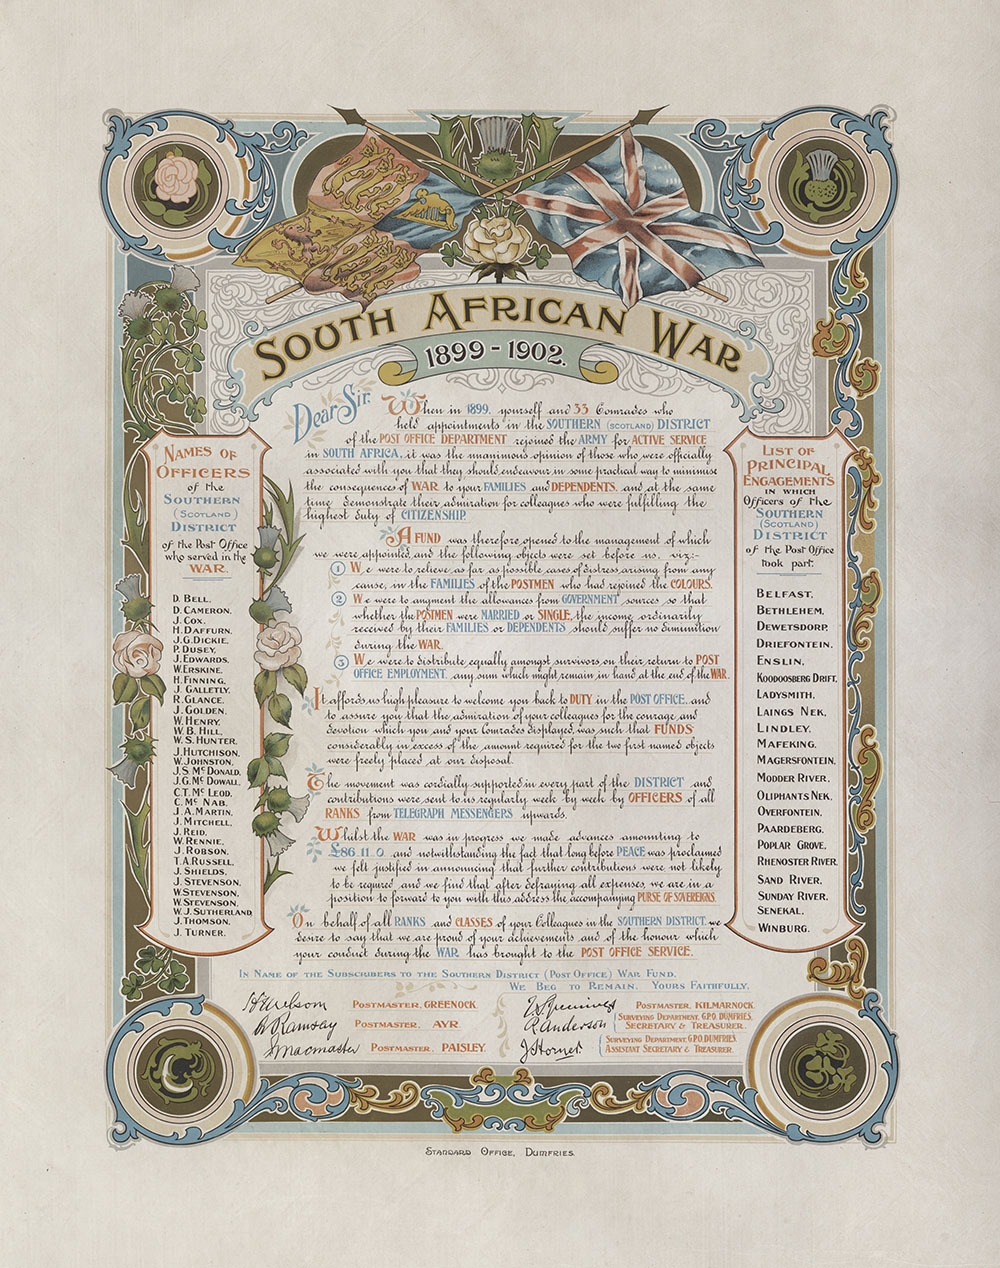 SOUTH AFRICAN WAR
1899 - 1902.
Dear Sir.
When in 1899, yourself and 33 Comrades who
held appointments in the SOUTHERN (SCOTLAND) DISTRICT
of the POST OFFICE DEPARTMENT rejoined the ARMY for ACTIVE SERVICE
in SOUTH AFRICA, it was the unanimous opinion of those who were officially
associated with you that they should endeavour in some practical way to minimise
the consequences of WAR to your FAMILIES and DEPENDENTS, and at the same
time demonstrate their admiration for colleagues who were fulfilling the
highest duty of CITIZENSHIP.
A FUND was therefore opened to the management of which
we were appointed, and the following objects were set before us, viz:-
1 We were to relieve as far as possible, cases of distress arising from any
cause, in the FAMILIES of the POSTMEN who had rejoined the COLOURS.
2 We were to augment the allowances from GOVERNMENT sources so that
whether the POSTMEN were MARRIED or SINGLE, the income ordinarily
received by their FAMILIES or DEPENDENTS should suffer no diminution
during the WAR.
3 We were to distribute equally amongst survivors, on their return to POST
OFFICE EMPLOYMENT, any sum which might remain in hand at the end of the WAR.
It affords us high pleasure to welcome you back to DUTY in the POST OFFICE, and
to assure you that the admiration of your colleagues for the courage and
devotion which you and your Comrades displayed, was such that FUNDS
considerably in excess of the amount required for the two first named objects
were freely placed at our disposal.
The movement was cordially supported in every part of the DISTRICT and
contributions were sent to us regularly week by week by OFFICERS of all
RANKS from TELEGRAPH MESSENGERS upwards.
Whilst the WAR was in progress we made advances amounting to
£86.11.0 and notwithstanding the fact that long before PEACE was proclaimed
we felt justified in announcing that further contributions were not likely
to be required, and we find that after defraying all expenses, we are in a
position to forward to you with this address the accompanying PURSE OF SOVEREIGNS.
On behalf of all RANKS and CLASSES of your Colleagues in the SOUTHERN DISTRICT, we
desire to say that we are proud of your achievements and of the honour which
your conduct during the WAR has brought to the POST OFFICE SERVICE.
IN NAME OF THE SUBSCRIBERS TO THE SOUTHERN DISTRICT (POST OFFICE) WAR FUND.
WE BEG TO REMAIN. YOURS FAITHFULLY.
NAMES OF
OFFICERS
of the
SOUTHERN
(SCOTLAND)
DISTRICT
of the Post Office
who served in the
WAR.
D. BELL.
D. CAMERON.
J. COX.
H. DAFFURN.
J. G. DICKIE.
P. DUSEY.
J. EDWARDS.
W. ERSKINE.
H. FINNING.
J. GALLETLY.
R. GLANCE.
J. GOLDEN.
W. HENRY.
W. B. HILL.
W. S. HUNTER.
J. HUTCHISON.
W. JOHNSTON.
J. S. McDONALD.
J. G. McDOWALL.
C. T. McLEOD.
C. McNAB.
J. A. MARTIN.
J. MITCHELL.
J. REID.
W. RENNIE.
J. ROBSON.
T. A. RUSSELL.
J. SHIELDS.
J. STEVENSON.
W. STEVENSON.
W. STEVENSON.
W. J. SUTHERLAND.
J. THOMSON.
J. TURNER.
LIST OF
PRINCIPAL
ENGAGEMENTS
IN WHICH
Officers of the
SOUTHERN
(SCOTLAND)
DISTRICT
of the Post Office
took part.
BELFAST.
BETHLEHEM.
DEWETSDORP.
DRIEFONTEIN.
ENSLIN.
KOODOOSBERG DRIFT.
LADYSMITH.
LAINGS NEK.
LINDLEY.
MAFEKING.
MAGERSFONTEIN.
MODDER RIVER.
OLIPHANTS NEK.
OVERFONTEIN.
PAARDEBERG.
POPLAR GROVE.
RHENOSTER RIVER.
SAND RIVER.
SUNDAY RIVER.
SENEKAL.
WINBURG.
POSTMASTER, GREENOCK.
Ramsay POSTMASTER, AYR.
J Macmaster POSTMASTER, PAISLEY.
POSTMASTER, KILMARNOCK.
R Anderson SURVEYING DEPARTMENT. G.P.O. DUMFRIES.
SECRETARY & TREASURER.
J Horner. SURVEYING DEPARTMENT. G.P.O. DUMFRIES.
ASSISTANT SECRETARY & TREASURER.
STANDARD OFFICE, DUMFRIES.